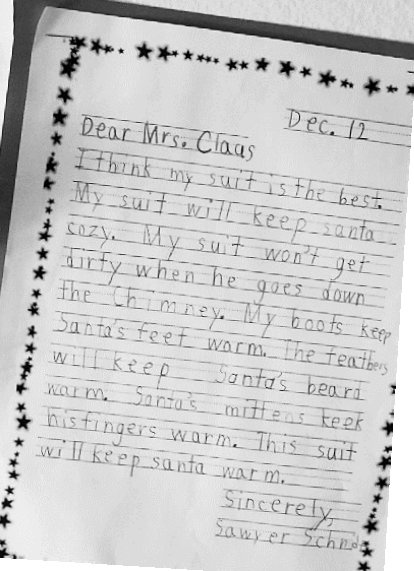 Dec. 12
Dear Mrs. Claus
I think my suit is the best.
My suit will keep santa
cozy. My suit won't get
dirty when he goes down
the Chimney. My boots keep
Santa's feet warm. The feathers
will keep Santa's beard
warm. Santa's mittens keek
his fingers warm. This suit
will keep santa warm.
Sincerely,
Sawyer